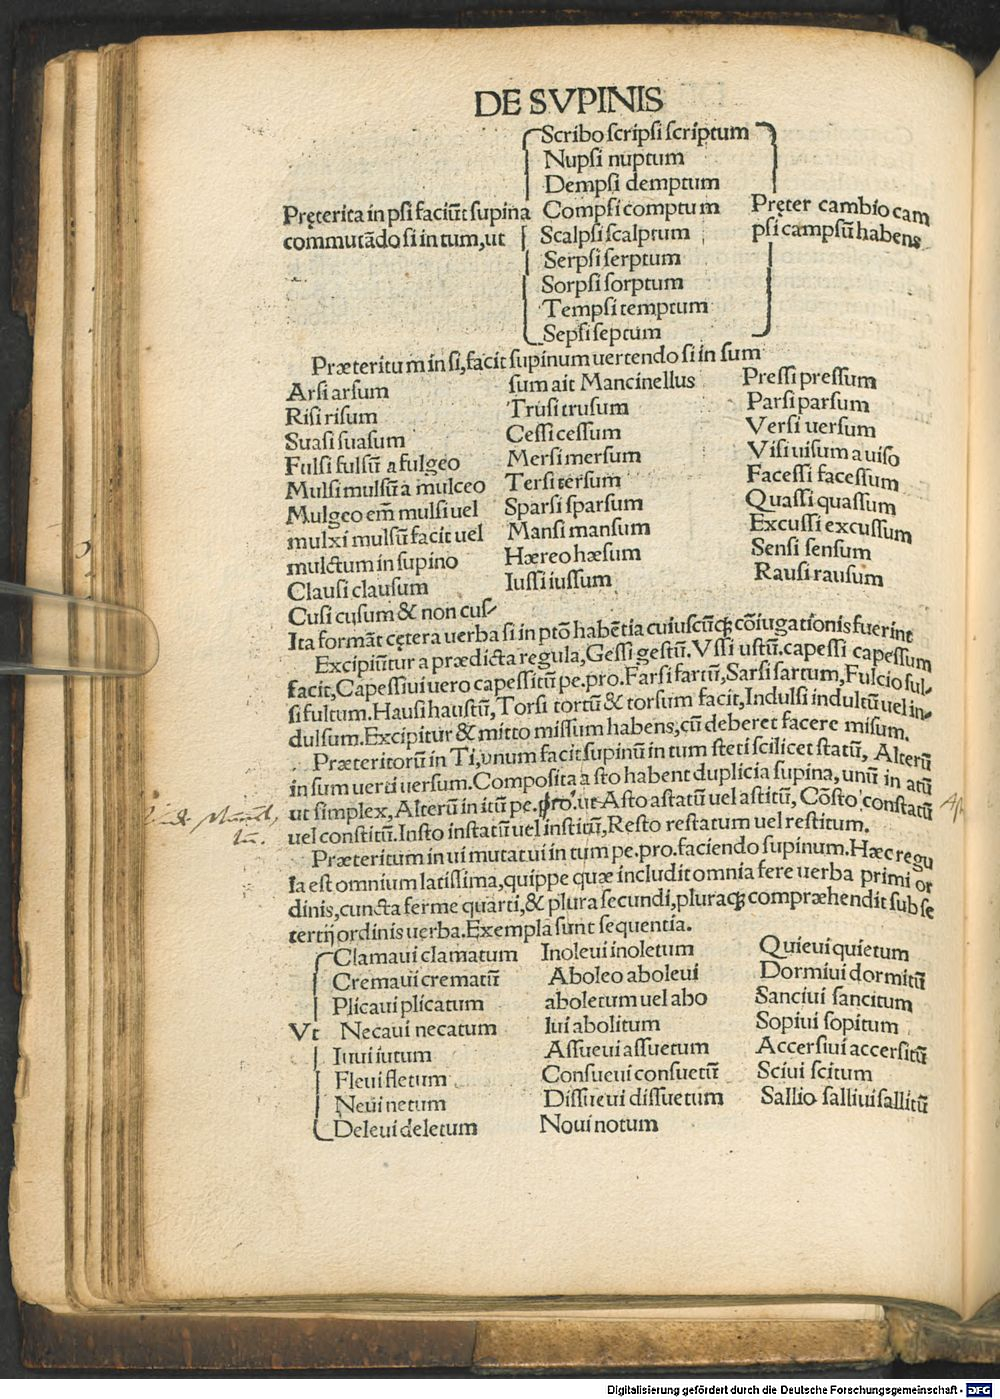 DE SVPINIS
Pręterita in psi faciũt supina
commutãdo si in tum,ut
Scribo scripsi scriptum
Nupsi nuptum
Dempsi demptum
Compsi comptum
Scalpsi scalptum
Serpsi serptum
Sorpsi sorptum
Tempsi temptum
Sepsi septum
Pręter cambio cam
psi campsũ habens
Præteritum in si,facit supinum uertendo si in sum
Arsi arsum
Risi risum
Suasi suasum
Fulsi fulsũ a fulgeo
Mulsi mulsũ a mulceo
Mulgeo em̃ mulsi uel
mulxi mulsũ facit uel
mulctum in supino
Clausi clausum
Cusi cusum & non cus-
sum ait Mancinellus
Trusi trusum
Cessi cessum
Mersi mersum
Tersi tersum
Sparsi sparsum
Mansi mansum
Hæreo hæsum
Iussi iussum
Pressi pressum
Parsi parsum
Versi uersum
Visi uisum a uiso
Facessi facessum
Quassi quassum
Excussi excussum
Sensi sensum
Rausi rausum
Ita formãt cętera uerba si in ptõ habẽtia cuiuscũqꝫ cõiugationis fuerint
Excipiũtur a prædicta regula,Gessi gestũ.Vssi ustũ.capessi capessum
facit,Capessiui uero capessitũ pe.pro.Farsi fartũ,Sarsi sartum,Fulcio ful-
si fultum.Hausi haustũ,Torsi tortũ & torsum facit,Indulsi indultũ uel in-
dulsum.Excipitur & mitto missum habens,cũ deberet facere misum.
Præteritorũ in Ti,unum facit supinũ in tum steti scilicet statũ, Alterũ
in sum uerti uersum.Composita a sto habent duplicia supina,unũ in atũ
ut simplex,Alterũ in itũ pe.pro.ut Asto astatũ uel astitũ, Cõsto constatũ
uel constitũ.Insto instatũ uel institũ,Resto restatum uel restitum.
Præteritum in ui mutat ui in tum pe.pro.faciendo supinum.Hæc regu
la est omnium latissima,quippe quæ includit omnia fere uerba primi or
dinis,cuncta ferme quarti,& plura secundi,pluraqꝫ compræhendit sub se
tertij ordinis uerba.Exempla sunt sequentia.
Vt
Clamaui clamatum
Cremaui crematũ
Plicaui plicatum
Necaui necatum
Iuui iutum
Fleui fletum
Neui netum
Deleui deletum
Inoleui inoletum
Aboleo aboleui
aboletum uel abo
lui abolitum
Assueui assuetum
Consueui consuetũ
Dissueui dissuetum
Noui notum
Quieui quietum
Dormiui dormitũ
Sanciui sancitum
Sopiui sopitum
Accersiui accersitũ
Sciui scitum
Sallio salliui sallitũ
Digitalisierung gefördert durch die Deutsche Forschungsgemeinschaft - DFG